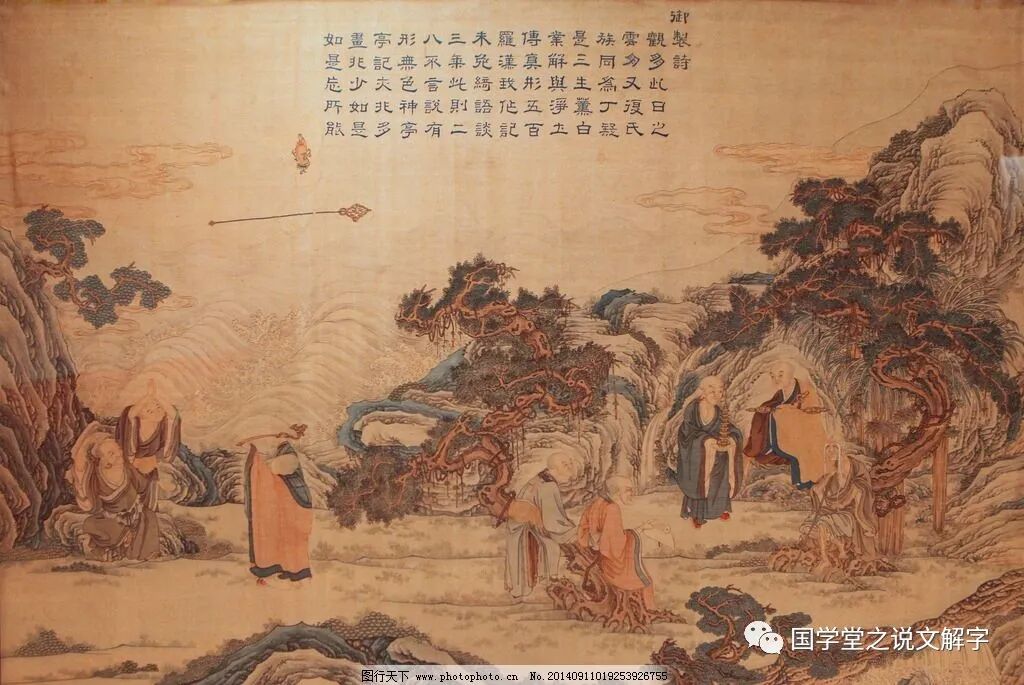 御製詩
觀多此日之
雲又復氏
族同為丁疑
是三生薰白
業解與淨土
傳真形五百
羅漢我作記
未免綺語談
三乘此則二
八不言說有
形無色神亭
亭記夫非多
畫非少如是
如是忘所能
国学堂之说文解字
图行天下 www.photophoto.cn No.20140911019253926755